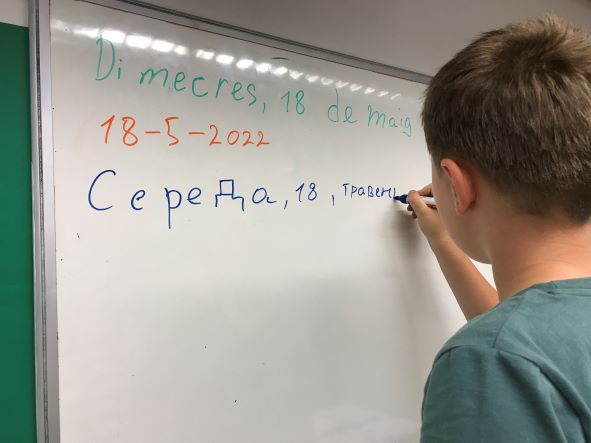 Dimecres, 18 de maig
18-5-2022
Середа, 18, травень